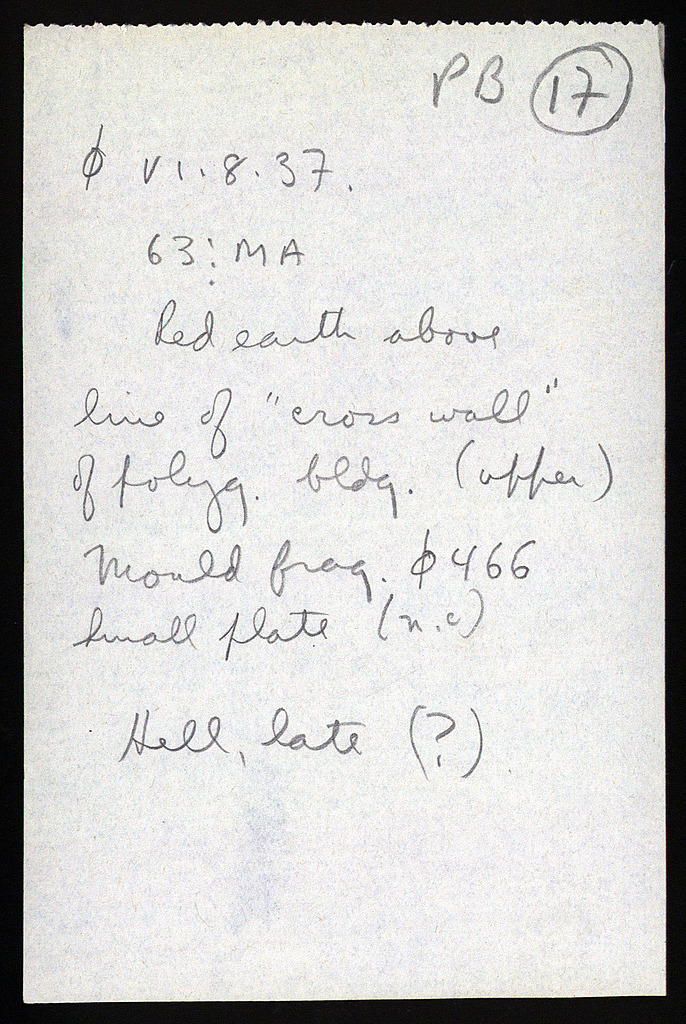 PB 17
ϕ VI.8.37.
63:MA
Red earth above
line of "cross wall"
of polyg. bldg. (upper)
Mould frag. ϕ466
Small plate (n.c)
Hell, late (?)